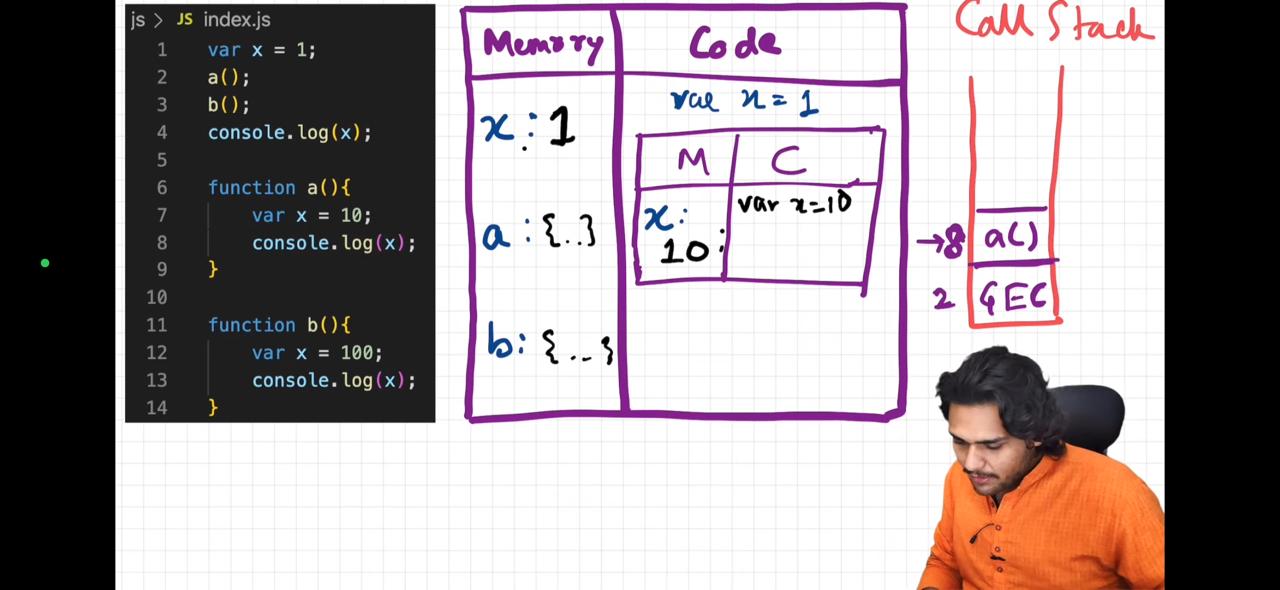 js > JS index.js
1 var x = 1;
2 a();
3 b();
4 console.log(x);
5
6 function a(){
7 var x = 10;
8 console.log(x);
9 }
10
11 function b(){
12 var x = 100;
13 console.log(x);
14 }
Memory Code
var x = 1
x : 1
M C
x: var x=10
10:
a : {..}
b: {...}
Call Stack
→8 a()
2 GEC